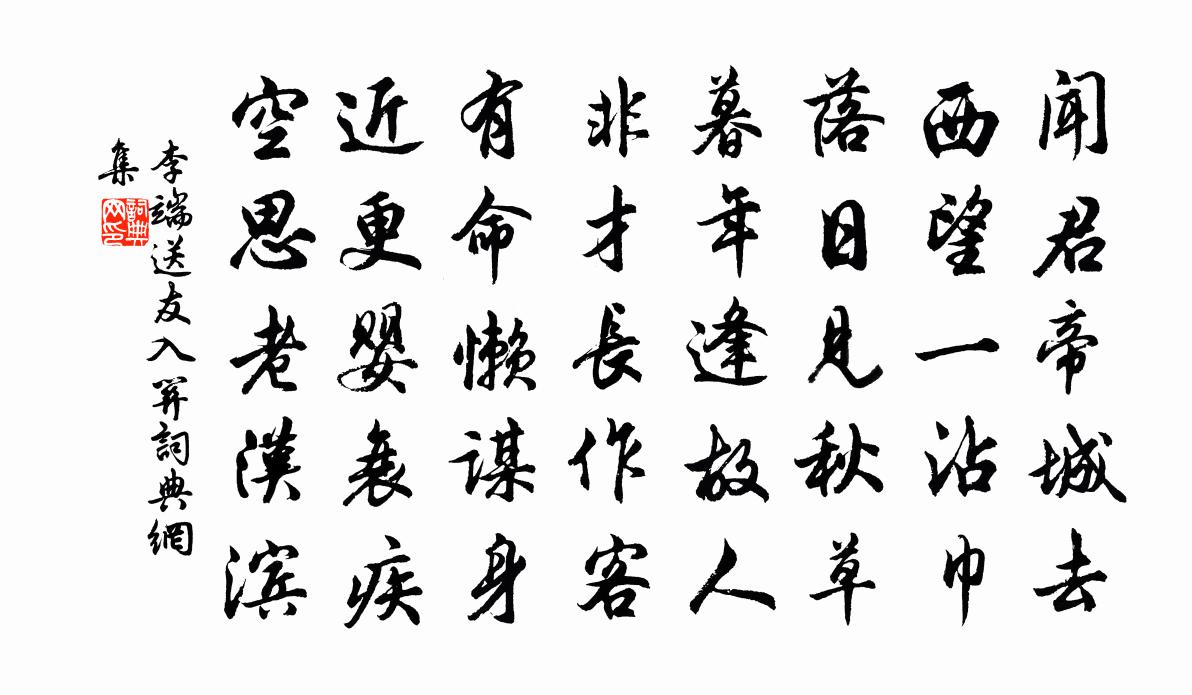 闻君帝城去
西望一沾巾
落日见秋草
暮年逢故人
非才長作客
有命懒谋身
近更婴衰疾
空思老漢滨
李端送友入关詞典網
集
詞典
网印